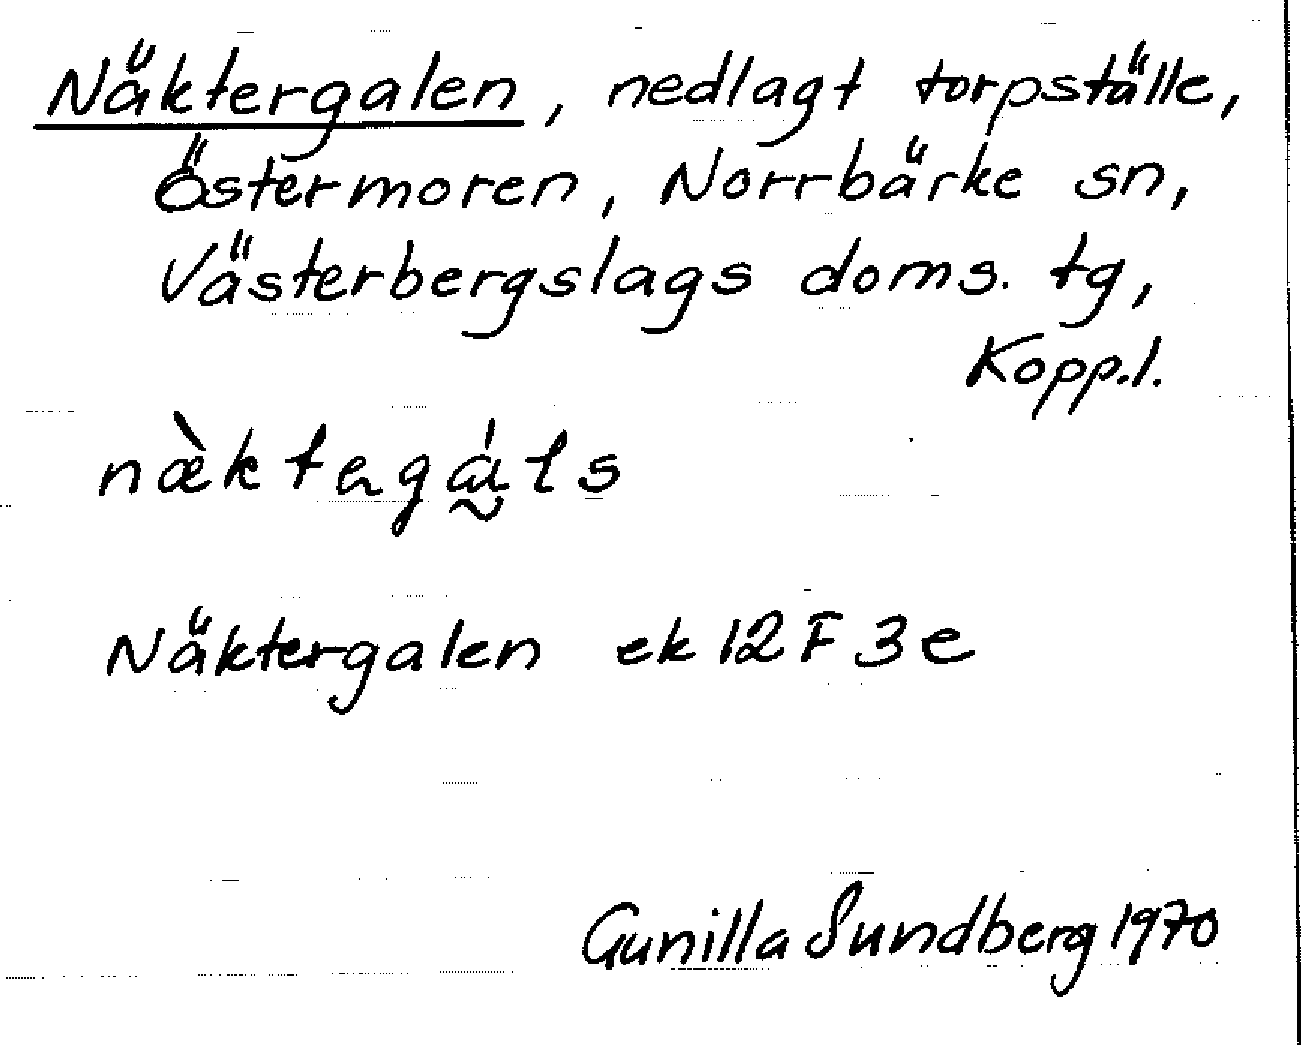 Näktergalen, nedlagt torpställe,
Östermoren, Norrbärke sn,
Västerbergslags doms. tg,
Kopp.l.
Näktergalen ek 12 F 3 e
Gunilla Sundberg 1970